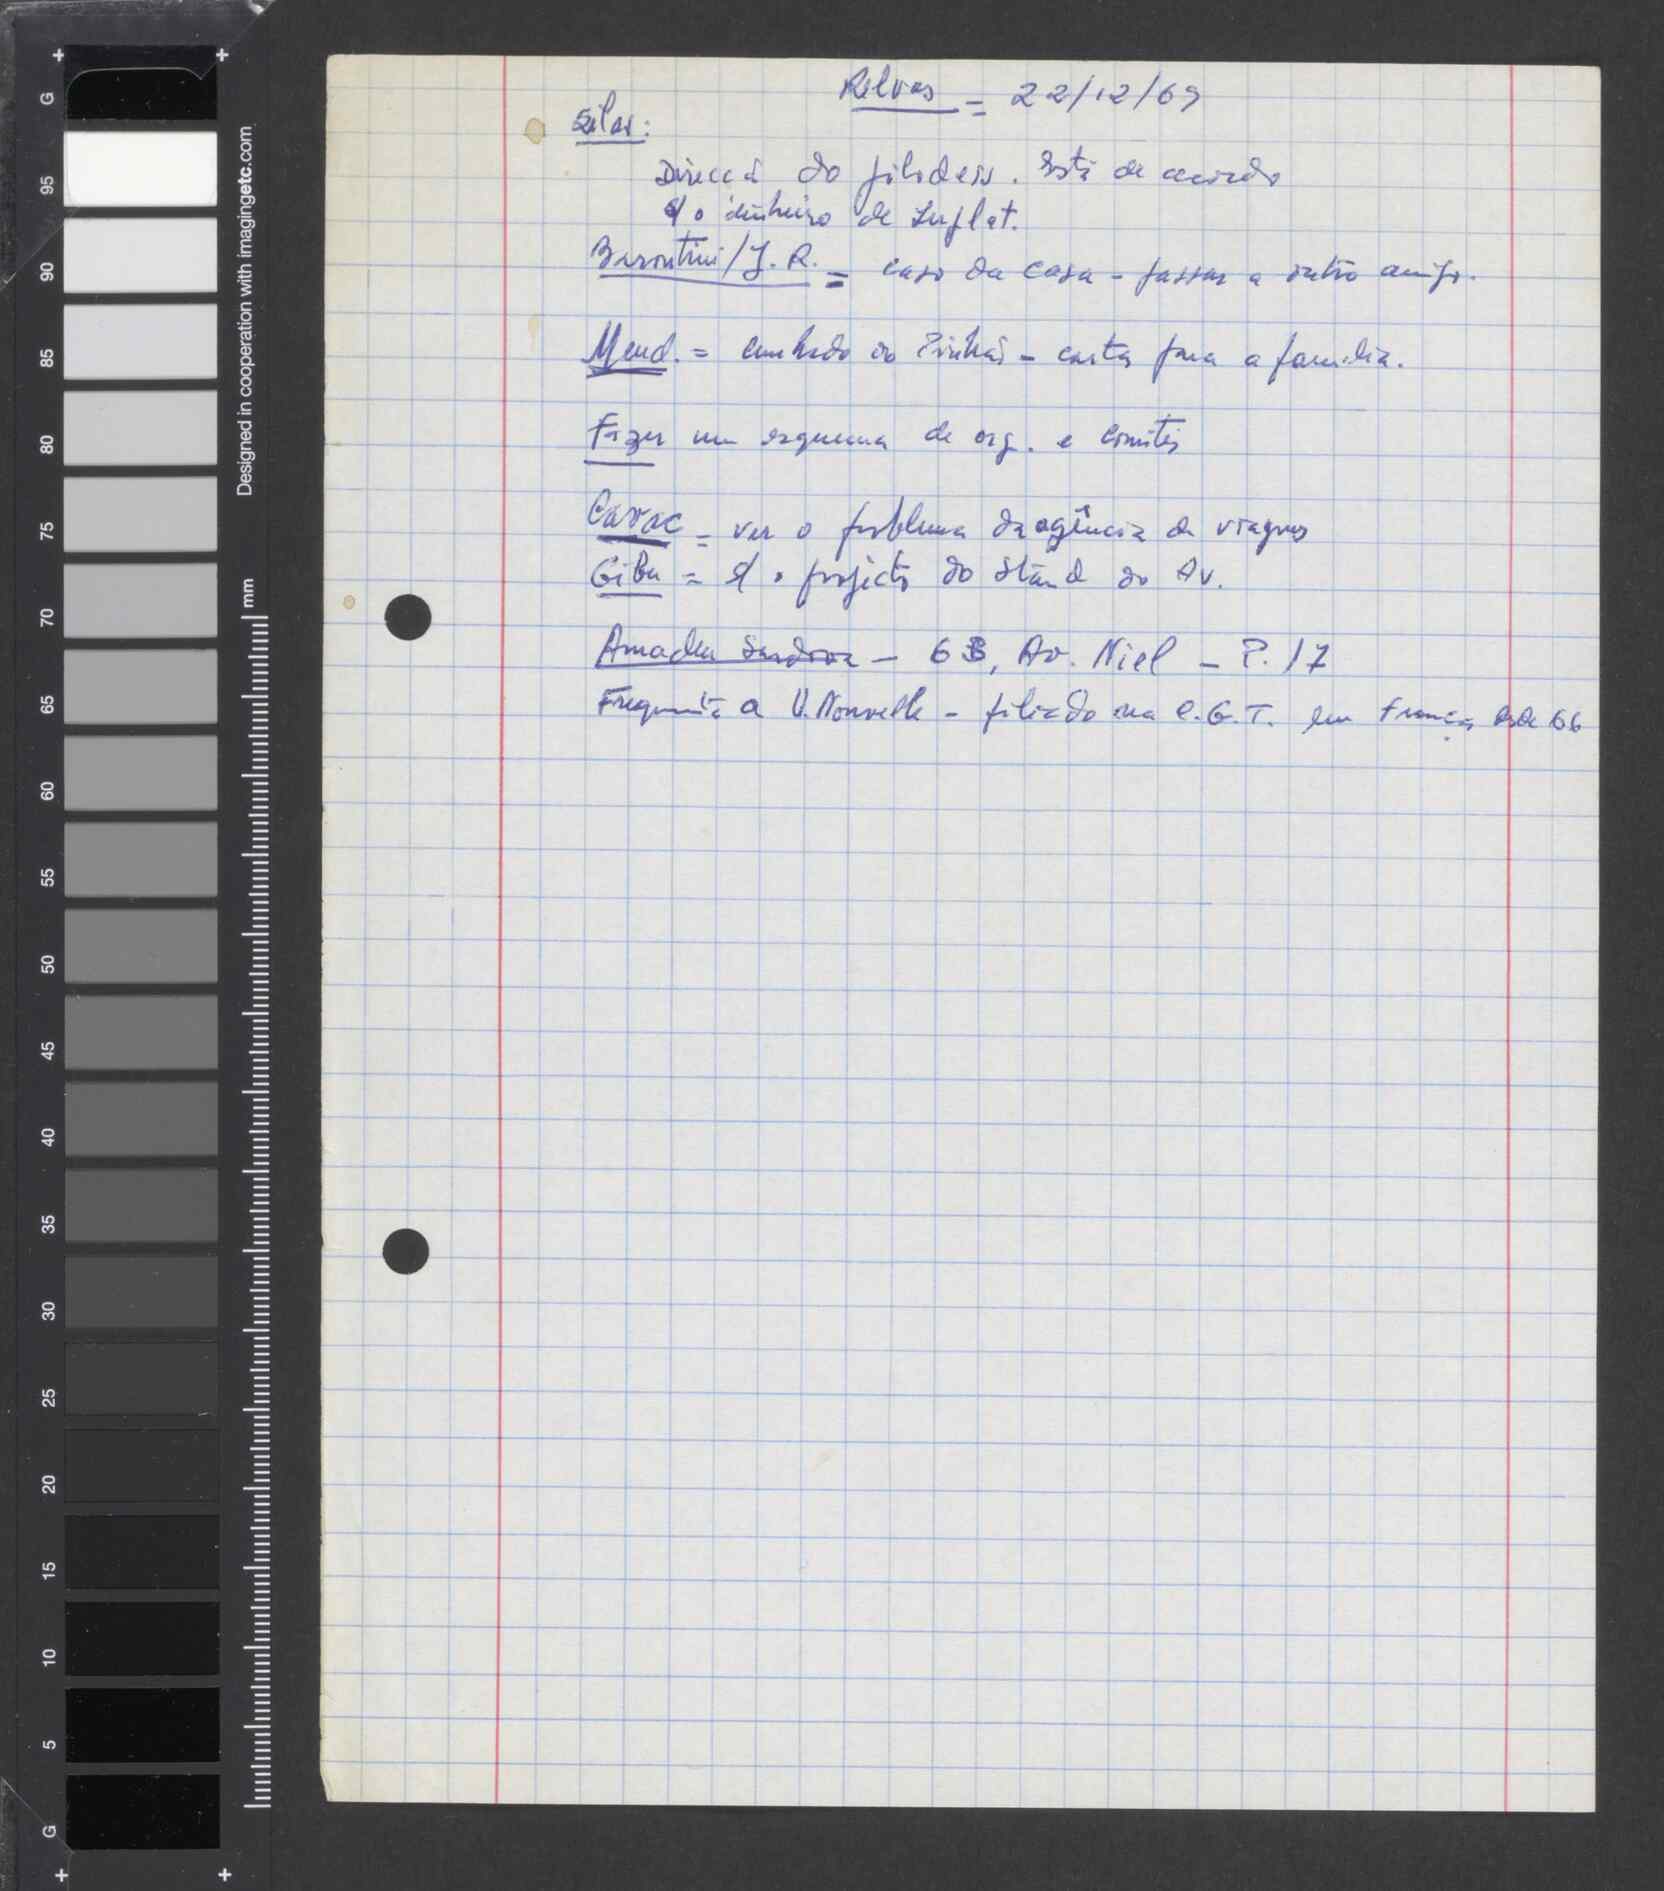 Relvas = 22/12/69
Silas:
Direcçã do filodeis. Está de acordo
s/ o dinheiro de
Barontini/J.R. = caso da casa - passar a outro amigo.
Mend. = cunhado do Pinhão - carta para a família.
Fazer um esquema de org. e comités
Cavac = ver o problema da agência de viagens
Giba = s/ o projecto do stand do Av.
Amadeu - 63, Av. Niel - P. 17
Frequenta a V. Nouvelle - filiado na C.G.T. em França desde 66
Designed in cooperation with imagingetc.com
mm
G
95
90
85
80
75
70
65
60
55
50
45
40
35
30
25
20
15
10
5
G